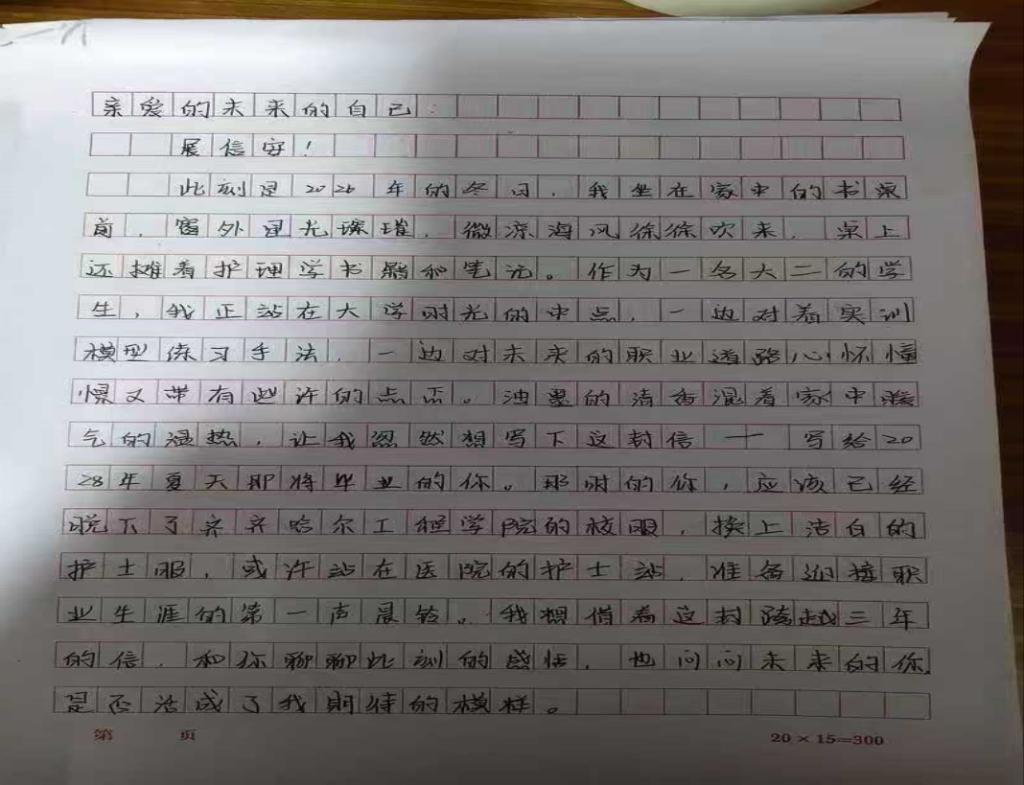 亲爱的未来的自己：
展信安！
此刻是2026年的冬日，我坐在家中的书桌
前，窗外星光璀璨，微凉海风徐徐吹来，桌上
还摊着护理学书籍和笔记。作为一名大二的学
生，我正站在大学时光的中点，一边对着实训
模型练习手法，一边对未来的职业道路心怀憧
憬又带有些许的忐忑。油墨的清香混着家中暖
气的温热，让我忽然想写下这封信——写给20
28年夏天即将毕业的你。那时的你，应该已经
脱下了齐齐哈尔工程学院的校服，换上洁白的
护士服，或许站在医院的护士站，准备迎接职
业生涯的第一声晨铃。我想借着这封跨越三年
的信，和你聊聊此刻的感悟，也问问未来的你
是否活成了我期待的模样。
第 页
20×15=300